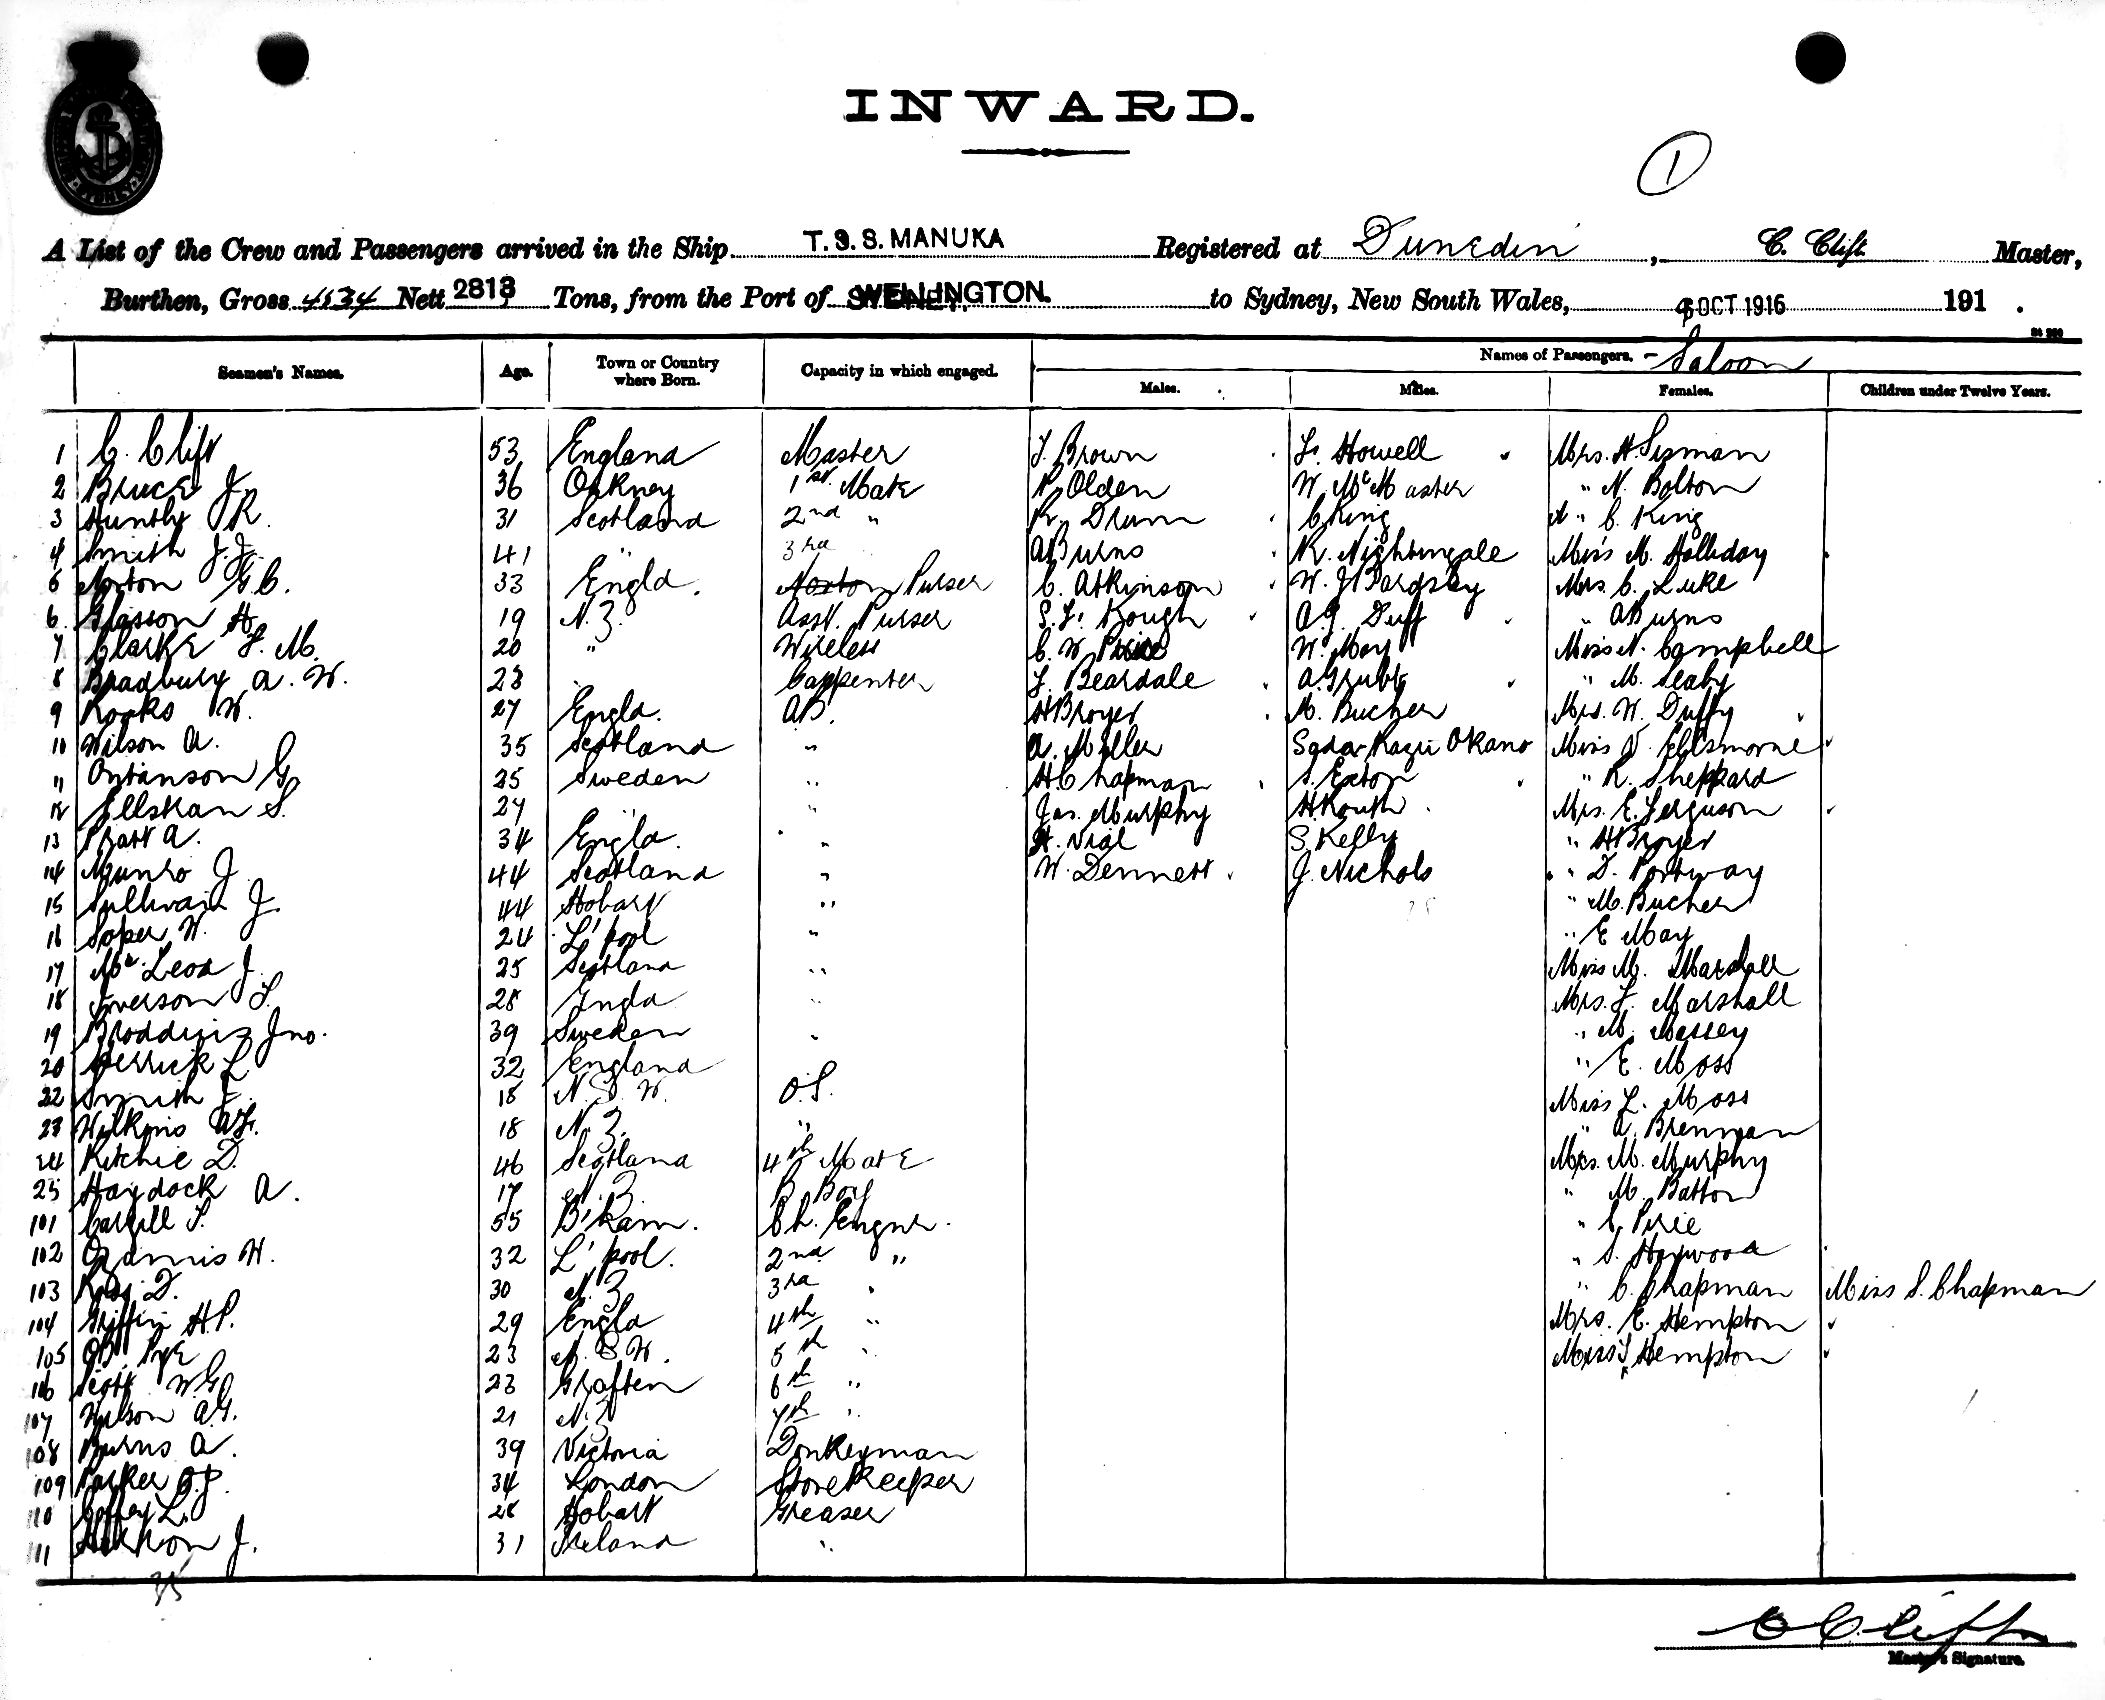 INWARD.
1
A List of the Crew and Passengers arrived in the Ship T.S.S. MANUKA Registered at Dunedin, C. Clift Master,
Burthen, Gross 4534 Nett 2813 Tons, from the Port of WELLINGTON. to Sydney, New South Wales, 6 OCT 1916 191 .
Seamen's Names. Age. Town or Country where Born. Capacity in which engaged. Names of Passengers. - Saloon
Males. Males. Females. Children under Twelve Years.
1 C. Clift 53 England Master J. Brown L. Howell Mrs. H. Sisman
2 Bruce J. 36 Orkney 1st. Mate P. Olden W. McMaster " N. Bolton
3 Huntly J R. 31 Scotland 2nd " R. Drum C King " C. King
4 Smith J. J. 41 " 3rd A Burns R. Nightingale Miss M. Holliday
5 Norton G. C. 33 Engld. Purser C. Atkinson W. J Bardsley Mrs. C. Luke
6. Glasson H. 19 N. Z. Asst. Purser S. L. Kough A. G. Duff " A Burns
7 Clarke F. M. 20 " Wireless C. W. W. May Miss N. Campbell
8 Bradbury A. W. 23 Carpenter J. Beardale A Grubb " M. Seaby
9 Rooks W. 27 Engld. AB. H Broyer M. Bucher Mrs. W. Duffy
10 Wilson A. 35 Scotland " A. Miller Sada Kazu Okano Miss Ellsmorne
11 G. 25 Sweden " H Chapman S. Exton " R. Sheppard
12 Ellskan S. 27 " " Jas. Murphy H Routh Mrs. E. Ferguson
13 Pratt A. 34 Engld. " H. Vial S. Kelly " H Broyer
14 Munro J 44 Scotland " W. Dennett J. Nichols " D. Portway
15 Sullivan J. 44 Hobart " " M. Bucher
16 Soper W. 24 L'pool " " E May
17 McLeod J 25 Scotland " Miss M. Marshall
18 Iverson F. 28 Engld " Mrs. J. Marshall
19 Jno. 39 Sweden " " M. Massey
20 Herrick L 32 England " E. Moss
22 Smith E. 18 N. S. W. O.S. Miss L. Moss
23 Wilkins 18 N. Z. " " A. Brennan
24 Ritchie D. 46 Scotland 4th Mate Mrs. M. Murphy
25 Haydock A. 17 N. Z. B. Boy " M. Batton
101 Cargill S. 55 B'ham. Ch. Engnr. " C. Pirie
102 Adamis W. 32 L'pool. 2nd " " S. Haywood
103 Ross D. 30 N. Z. 3rd " " C. Chapman Miss S. Chapman
104 Griffin H P. 29 Engld 4th " Mrs. E. Hempton
105 Pye 23 N. S. W. 5th " Miss Hempton
106 Scott W. G. 23 Graften 6th "
107 Wilson A. G. 21 N. Z 7th "
108 Burns A. 39 Victoria Donkeyman
109 Parker 34 London Storekeeper
110 Coffey L. 28 Hobart Greaser
111 J. 31 Ireland "
35
C Clift
Master's Signature.